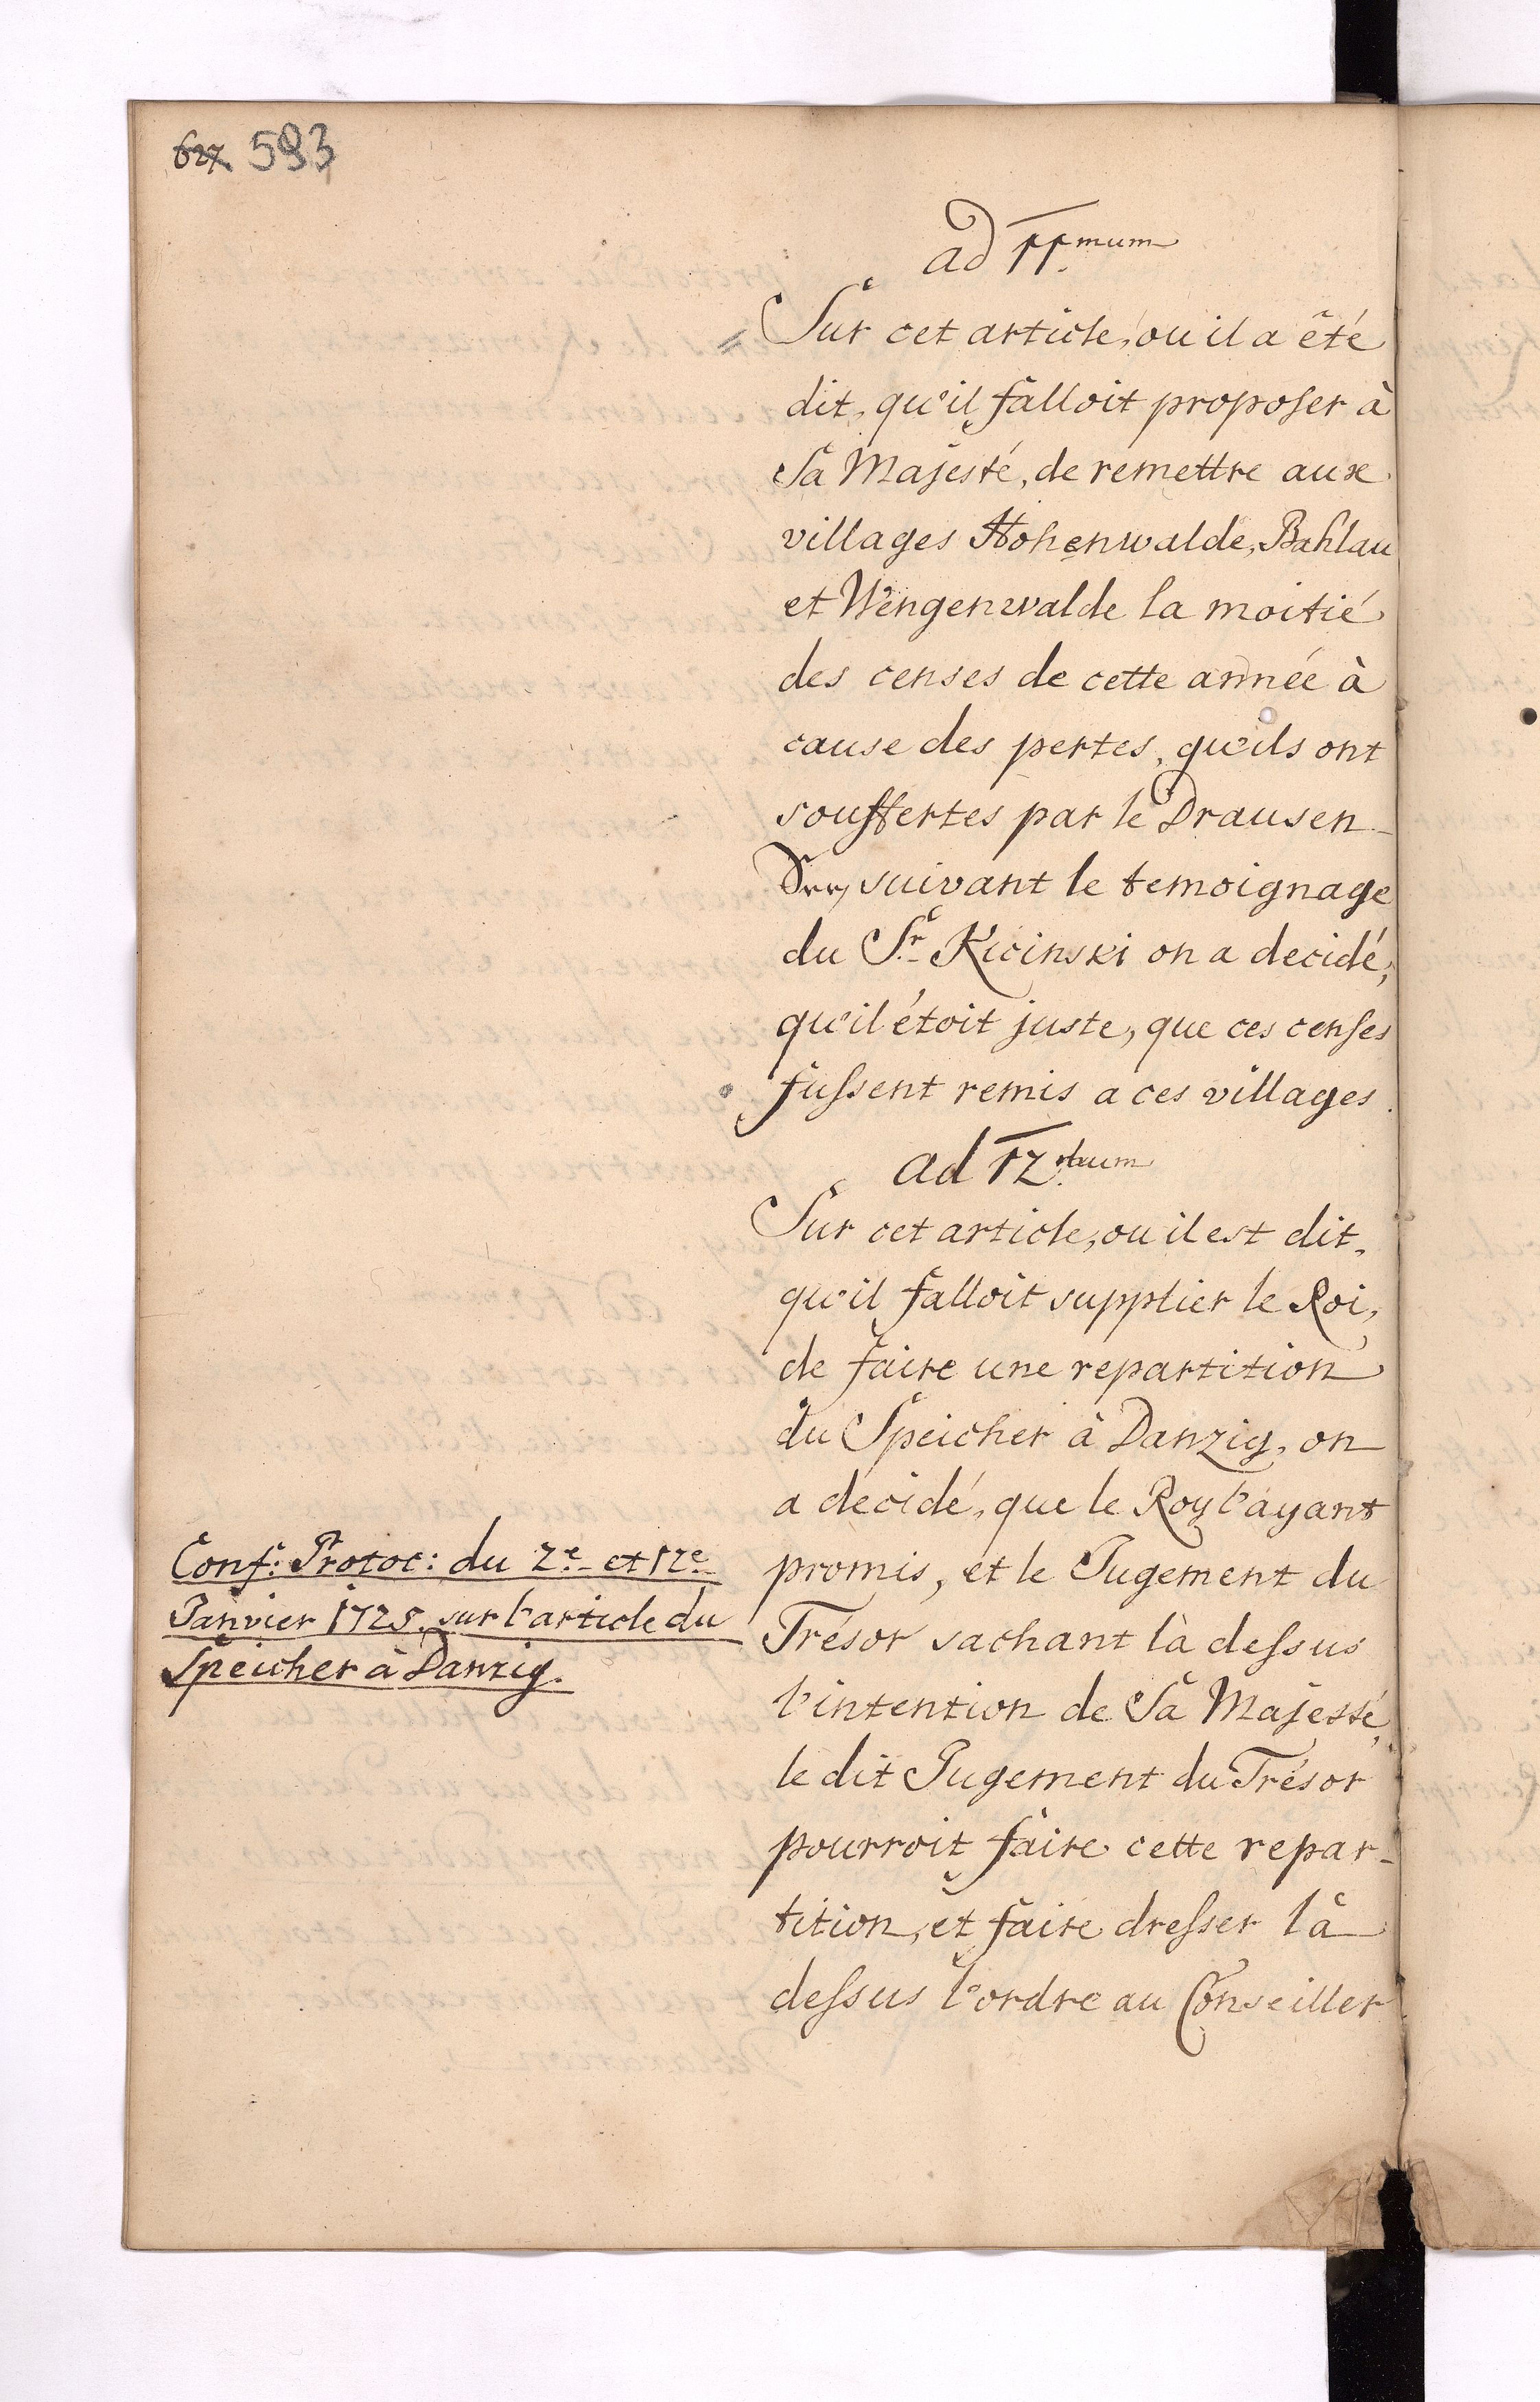 627 593
ad 11.mum
Sur cet article, ou il a êté
dit, qu'il falloit proposer à
Sa Majesté, de remettre aux
villages Hohenwalde, Bahlau
et Wengenwalde la moitié
des censes de cette année à
cause des pertes, qu'ils ont
souffertes par le Drausen-
See, suivant le temoignage
du Sr. Kicinski on a decidé,
qu'il étoit juste, que ces censes
fussent remis a ces villages.
ad 12.mum
Sur cet article, ou il est dit,
qu'il falloit supplier le Roi,
de faire une repartition
du Speicher à Danzig, on
a decidé, que le Roy l'ayant
promis, et le Jugement du
Trésor sachant là dessus
l'intention de Sa Majesté,
le dit Jugement du Trésor
pourroit faire cette repar-
tition, et faire dresser là
dessus l'ordre au Conseiller
Conf: Protoc: du 2e. et 12e.
Janvier 1725. sur l'article du
Speicher à Danzig.